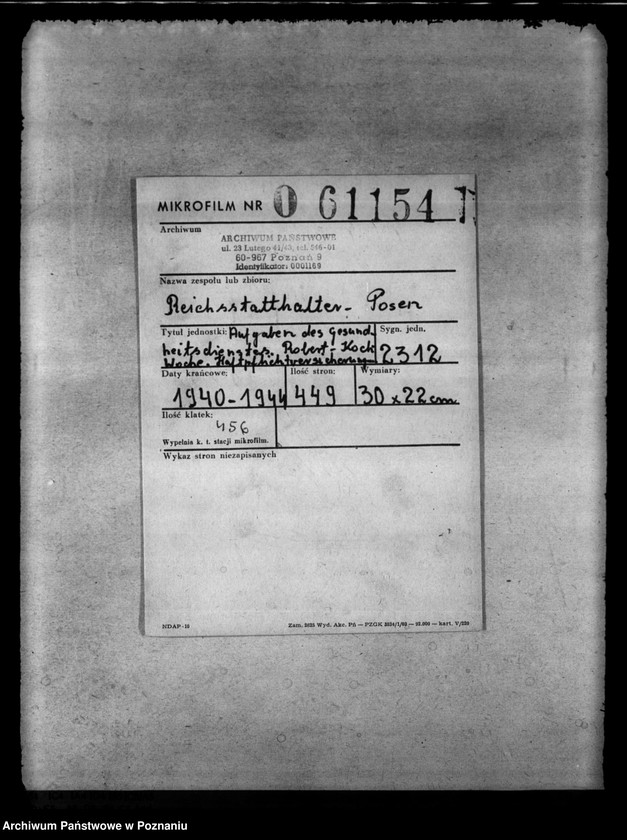 MIKROFILM NR 0 61154 1
Archiwum
ARCHIWUM PAŃSTWOWE
ul. 23 Lutego 41/43, tel. 546-01
60-967 Poznań 9
Identyfikator: 0001169
Nazwa zespołu lub zbioru:
Reichsstatthalter - Posen
Tytuł jednostki: Aufgaben des Gesund-
heitsdienstes, Robert-Koch
Woche. Haftpflichtversicherung
Sygn. jedn.
2312
Daty krańcowe:
1940-1944
Ilość stron:
449
Wymiary:
30 x 22 cm
Ilość klatek:
456
Wypełnia k. t. stacji mikrofilm.
Wykaz stron niezapisanych
NDAP-18
Zam. Wyd. Akc. Pń — PZGK — kart. V/229
Archiwum Państwowe w Poznaniu